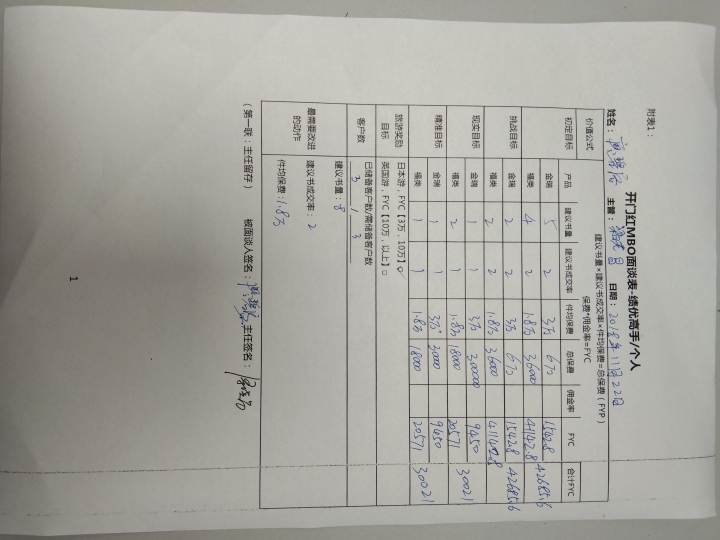 附表1：
开门红MBO面谈表-绩优高手/个人
姓名： 主管： 日期：2018年11月22日
价值公式 建议书量×建议书成交率×件均保费=总保费（FYP）
保费*佣金率=FYC
产品 建议书量 建议书成交率 件均保费 总保费 佣金率 FYC 合计FYC
初定目标 金瑞 5 2 3万 6万 1542.8 42685.6
福类 4 2 1.8万 36000 41142.8
挑战目标 金瑞 2 2 3万 6万 1542.8 42685.6
福类 2 2 1.8万 36000 41142.8
现实目标 金瑞 1 1 3万 30000 9450 30021
福类 2 1 1.8万 18000 20571
精准目标 金瑞 1 1 3万 3000 9450 30021
福类 1 1 1.8万 18000 20571
旅游奖励目标 日本游，FYC【3万，10万】
英国游，FYC【10万，以上】□
客户数 已储备客户数/需储备客户数
3 / 3
最需要改进的动作 建议书量：8
建议书成交率：2
件均保费：1.8万
（第一联：主任留存） 被面谈人签名： 主任签名：
1